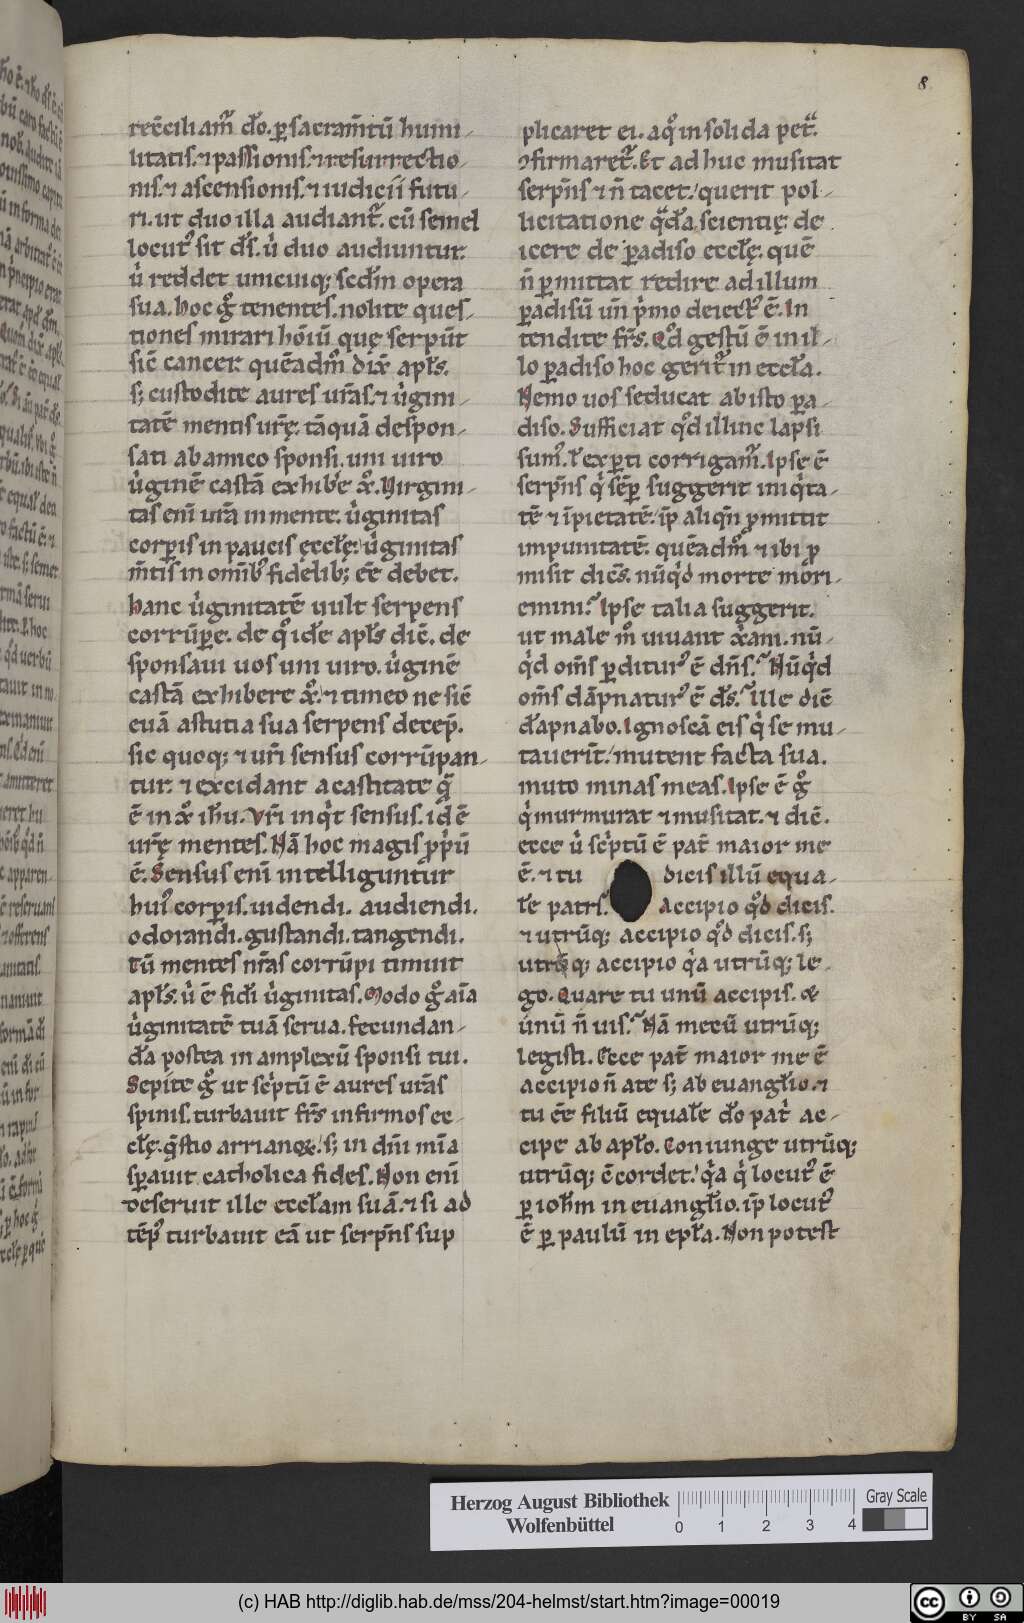 8
recc̄iliam̃ dõ. ꝑ sacram̄tū humi-
litatis. ⁊ passionis. ⁊ resurrectio-
nis. ⁊ ascensionis. ⁊ iudicii futu-
ri. ut duo illa audiant᷑. cū semel
locut᷒ sit ds̄. u̾ duo audiuntur.
u̾ reddet unicuiq; scd̄m opera
sua. hoc gͦ tenentes. nolite ques-
tiones mirari hōiū que̜ serpūt
sic̄ cancer. quēadm̄ dix̄ apl̄s.
s; custodite aures ur̄as. ⁊ u̾gini-
tatē mentis ur̄e̜. tāquā despon-
sati ab amico sponsi. uni uiro
u̾ginē castā exhibe᷑ xͦ. Virgini-
tas eni̅ ur̄a in mente. u̾ginitas
corꝑis in paucis e̜ccl̄e̜. u̾ginitas
m̄tis in omīb᷒ fidelib; ee̅ debet.
hanc u̾ginitatē uult serpens
corrūꝑe. de qͦ ide̅ apl̄s dic̄. de
sponsaui uos uni uiro. u̾ginē
castā exhibere xͦ. ⁊ timeo ne sic̄
euā astutia sua serpens decep̄.
sic quoq; ⁊ ur̄i sensus corrūpan-
tur. ⁊ excidant a castitate q̄
ē in xͦ ih̄u. Vr̄i inq̇t sensus. id ē
ur̄e̜ mentes. Nā hoc magis ꝓṗū
ē. Sensus eni̅ intelliguntur
hui᷒ corꝑis. uidendi. audiendi.
odorandi. gustandi. tangendi.
Cū mentes nr̄as corrūpi timuit
apl̄s. u̾ ē fidi̅ u̾ginitas. Modo gͦ aīa
u̾ginitatē tuā serua. fecundan-
da̅ postea in amplexū sponsi tui.
Sepite gͦ ut sc̄ptū ē aures ur̄as
spinis. turbauit fr̄s infirmos ec-
cl̄e̜. q̄stio arriano℞. s; in dn̄i mīa
sꝑauit catholica fides. Non eni̅
deseruit ille eccl̄am suā. ⁊ si ad
tēp᷒ turbauit eā ut serpn̄s sup
plicaret ei. aqͦ in solida pet᷑.
ꝯfirmaret᷑. Et adhuc musitat
serpn̄s ⁊ n̄ tacet. querit pol-
licitatione qͣda̅ scientie̜ de
icere de ꝑadiso eccl̄e̜. quē
n̄ ꝑmittat redire ad illum
ꝑadisū un̄ ṗmo deiect᷒ ē. In
tendite fr̄s. Qͦd gestū ē in il-
lo ꝑadiso hoc gerit᷑ in eccl̄a.
Nemo uos seducat ab isto ꝑa-
diso. Sufficiat qͦd illinc lapsi
sum᷒. l̄ exꝑti corrigam᷑. Ipse ē
serpn̄s q̇ sēꝑ suggerit iniq̇ta-
tē ⁊ īpietatē. ip̄ aliqn̄ ꝓmittit
impunitatē. quēadmͦ ⁊ ibi ꝓ
misit dicēs. nūq̇d morte mori-
emini. Ipse talia suggerit.
ut male mͦ uiuant xͦani. nū-
q̇d oms̄ ꝑditur᷒ ē dn̄s. Nūq̇d
oms̄ dāpnatur᷒ ē ds̄. Ille dic̄
da̅pnabo. Ignoscā eis q̇ se mu-
tauerīt. mutent facta sua.
muto minas meas. Ipse ē gͦ
q̇ murmurat ⁊ musitat. ⁊ dic̄.
ecce u̾ sc̄ptū ē pat̄ maior me
ē. ⁊ tu dicis illū equa-
le̅ patrs̄. Accipio qͦd dicis.
⁊ utrūq; accipio qͦd dicis. s;
utrūq; accipio q̇a utrūq; le-
go. Quare tu unū accipis. &
unū n̄ uis. Nā mecū utrūq;
legisti. Ecce pat̄ maior me ē
accipio n̄ a te s; ab euangl̄io. ⁊
tu ee̅ filiū equale̅ do̅ pat̾ ac-
cipe ab apl̄o. Coniunge utrūq;
utrūq; ē cordet. q̇a q̇ locut᷒ ē
ꝑ ioh̄m in euangl̄io. ip̄ locut᷒
ē ꝑ paulū in epl̄a. Non potest
Herzog August Bibliothek
Wolfenbüttel
0 1 2 3 4
Gray Scale
(c) HAB http://diglib.hab.de/mss/204-helmst/start.htm?image=00019
cc BY SA